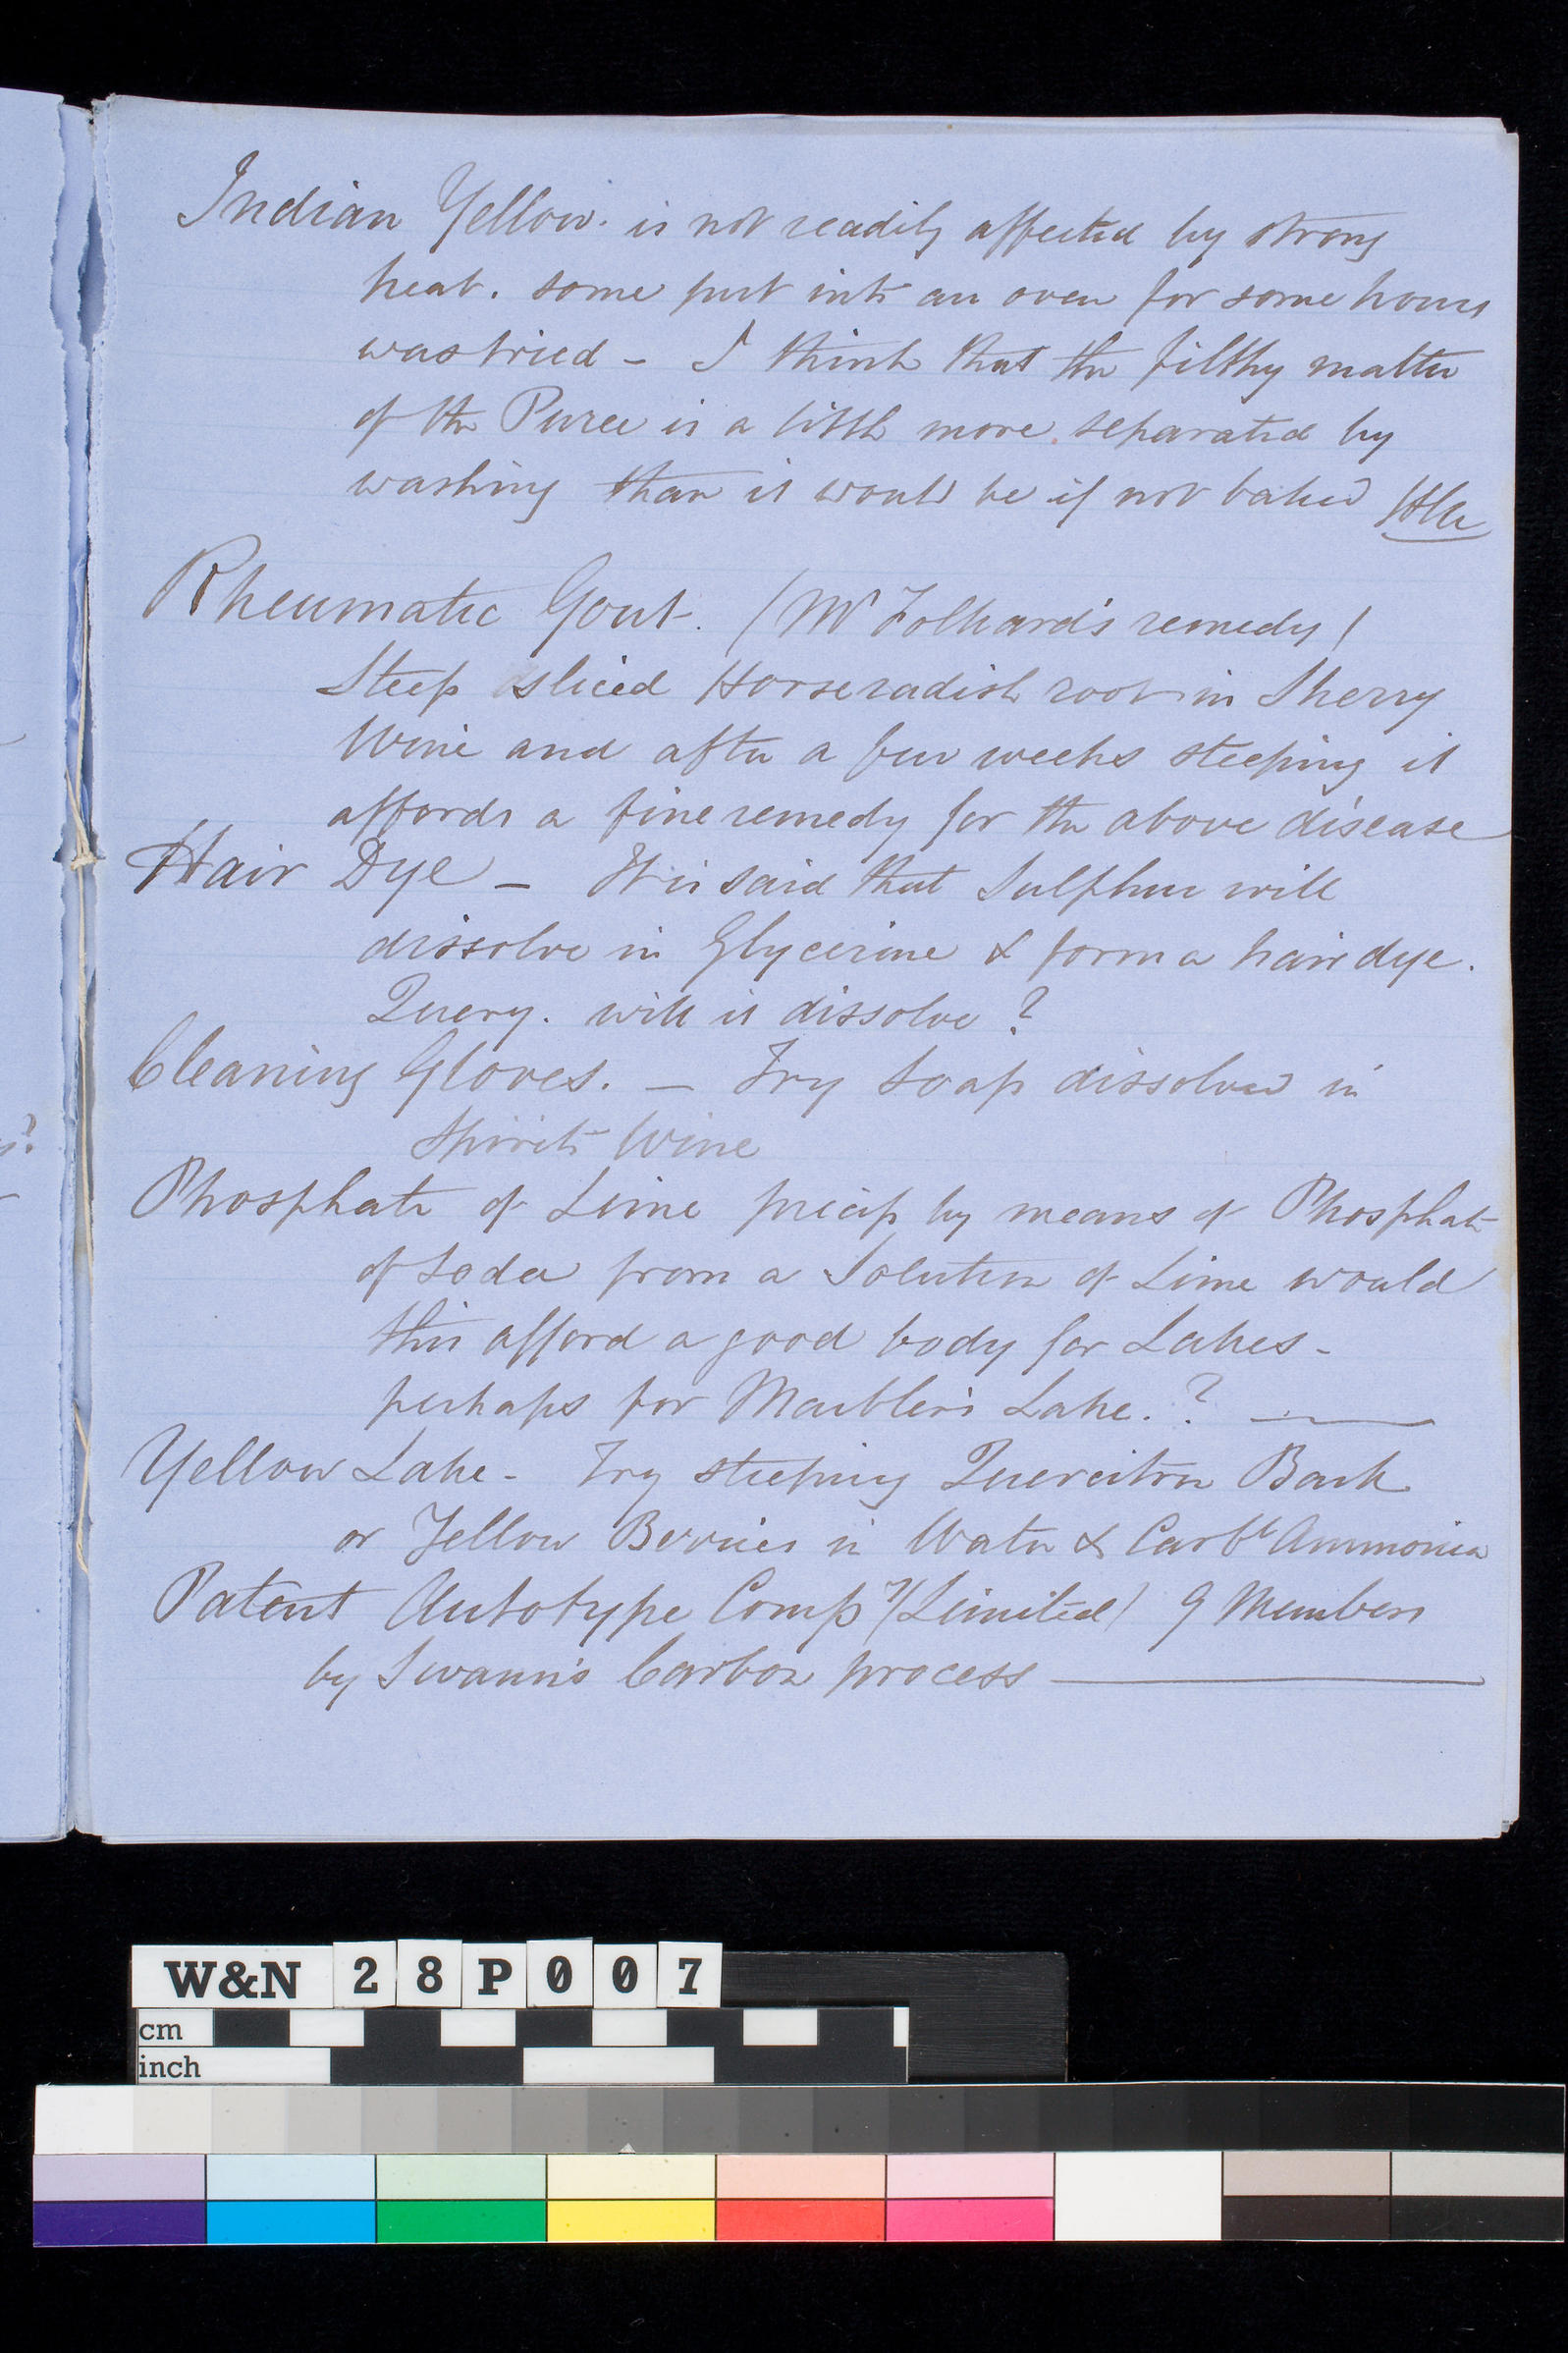 Indian Yellow. is not readily affected by strong
heat. some put into an oven for some hours
was tried - I think that the filthy matter
of the Puree is a little more separated by
washing than it would be if not baked
Rheumatic Gout. (Mr Folkard's remedy)
Steep sliced Horseradish root in Sherry
Wine and after a few weeks steeping it
affords a fine remedy for the above disease
Hair Dye - It is said that Sulphur will
dissolve in Glycerine & form a hair dye.
Query. will it dissolve ?
Cleaning Gloves. - Try Soap dissolved in
Spirits Wine
Phosphate of Lime precip by means of Phosphate
of Soda from a Solution of Lime would
this afford a good body for Lakes -
perhaps for Marbler's Lake. ?
Yellow Lake - Try steeping Quercitron Bark
or Yellow Berries in Water & Carbte Ammonia
Patent Autotype Compy (Limited) 9 Members
by Swann's Carbon process
W&N 28P007
cm
inch